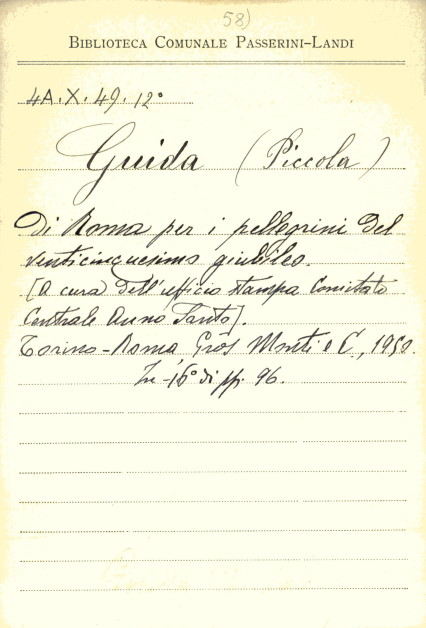 58)
BIBLIOTECA COMUNALE PASSERINI-LANDI
4A.X.49.12°
Guida (Piccola)
di Roma per i pellegrini del
venticinquesimo giubileo.
[A cura dell'ufficio stampa Comitato
Centrale Anno Santo].
Torino-Roma, Gros Monti e C., 1950.
In-16° di pp. 96.